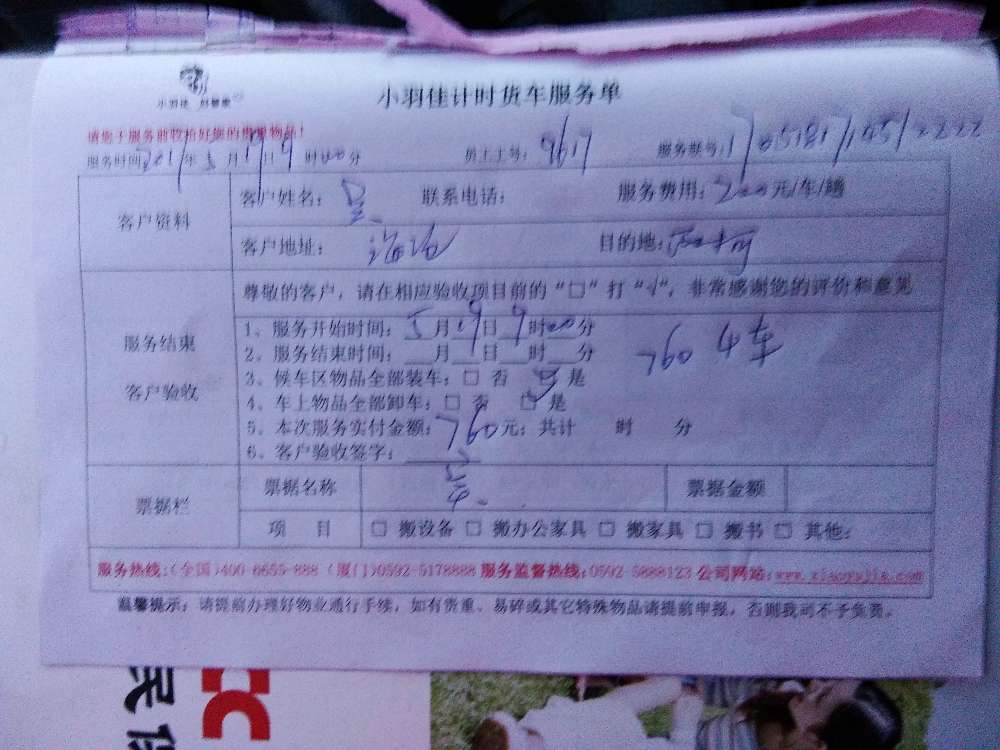 小羽佳计时货车服务单
小羽佳
请您于服务前收拾好您的贵重物品!
服务时间2017年5月19日9时00分 员工工号:9617 服务单号:
客户资料
客户姓名: 联系电话: 服务费用:200元/车/趟
客户地址:海沧 目的地:
服务结束
客户验收
尊敬的客户,请在相应验收项目前的“□”打“√”,非常感谢您的评价和意见
1、服务开始时间:5月19日9时00分
2、服务结束时间:___月___日___时___分
760 4车
3、候车区物品全部装车:□ 否 □ 是
4、车上物品全部卸车:□ 否 □ 是
5、本次服务实付金额:760元;共计 时 分
6、客户验收签字:
票据栏
票据名称 票据金额
项 目 □ 搬设备 □ 搬办公家具 □ 搬家具 □ 搬书 □ 其他:
服务热线:(全国)400-6655-888 (厦门)0592-5178888 服务监督热线:0592-5888123 公司网站:www.xiaoyujia.com
温馨提示:请提前办理好物业通行手续,如有贵重、易碎或其它特殊物品请提前申报,否则我司不予负责。